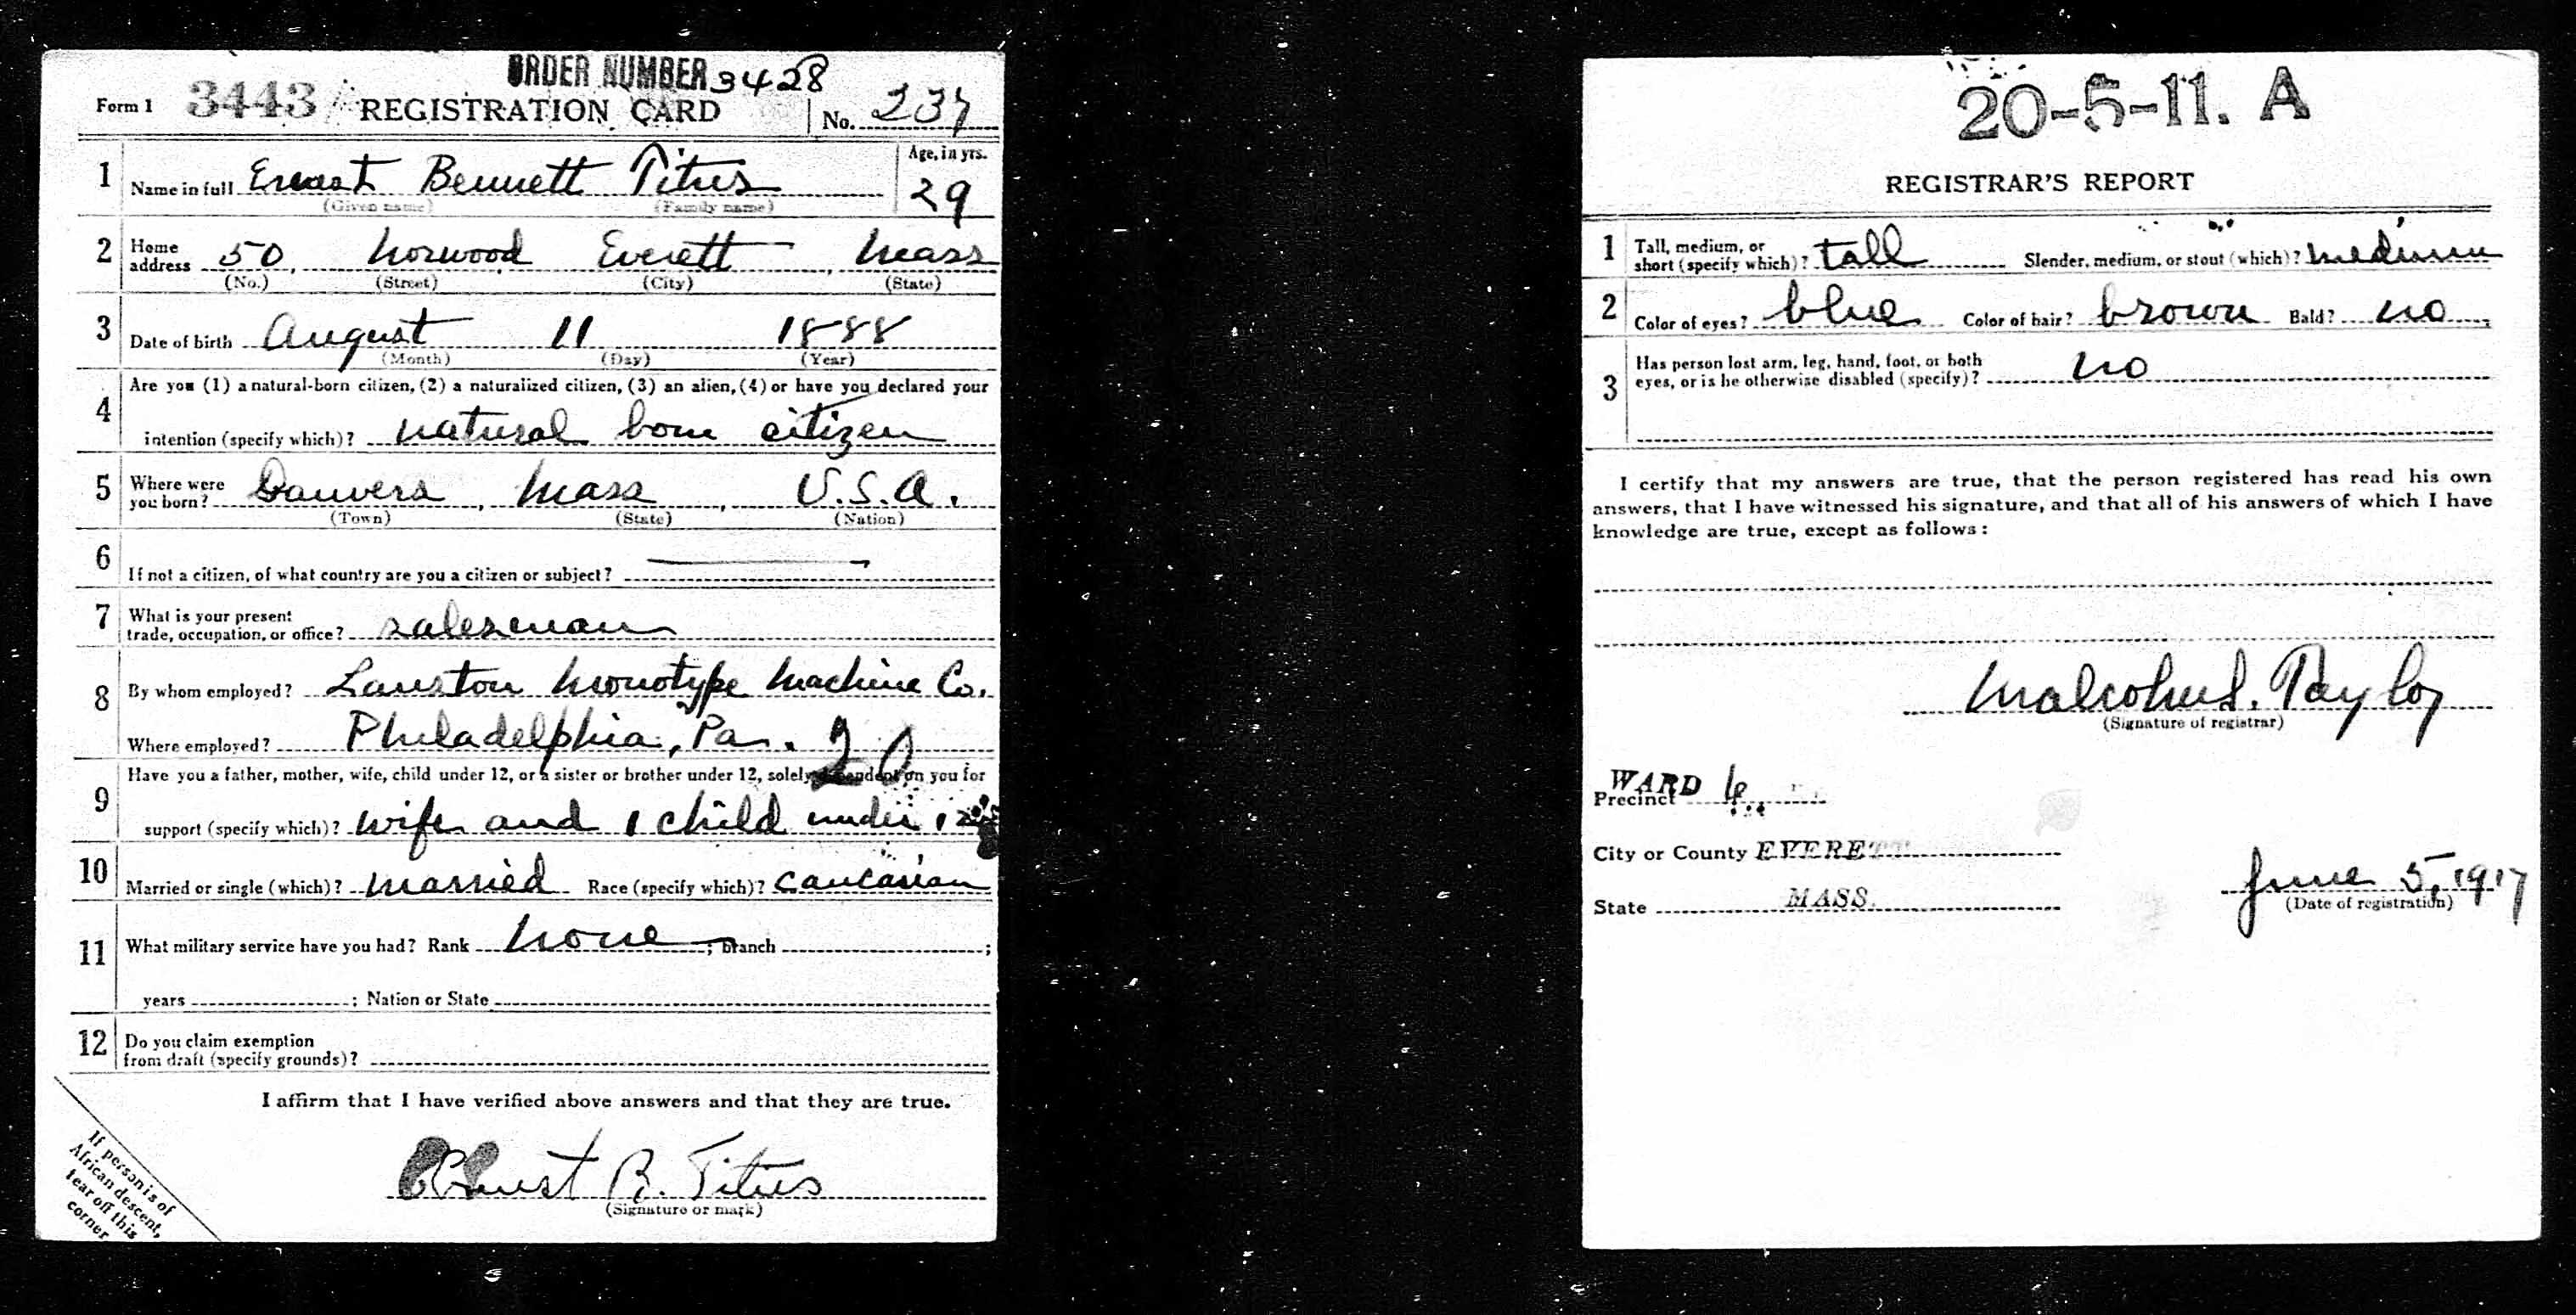 ORDER NUMBER 3428
Form 1 3443 REGISTRATION CARD No. 237
1 Name in full Ernest Bennett Titus Age, in yrs. 29
(Given name) (Family name)
2 Home address 50, Norwood Everett, Mass
(No.) (Street) (City) (State)
3 Date of birth August 11 1888
(Month) (Day) (Year)
4 Are you (1) a natural-born citizen, (2) a naturalized citizen, (3) an alien, (4) or have you declared your
intention (specify which)? natural born citizen
5 Where were you born? Danvers, Mass, U.S.A.
(Town) (State) (Nation)
6 If not a citizen, of what country are you a citizen or subject?
7 What is your present trade, occupation, or office? salesman
8 By whom employed? Lanston Monotype Machine Co.
Where employed? Philadelphia, Pa. 20
9 Have you a father, mother, wife, child under 12, or a sister or brother under 12, solely dependent on you for
support (specify which)? wife and 1 child under 12
10 Married or single (which)? married Race (specify which)? caucasian
11 What military service have you had? Rank none; branch ;
years ; Nation or State
12 Do you claim exemption
from draft (specify grounds)?
I affirm that I have verified above answers and that they are true.
Ernest B. Titus
(Signature or mark)
If person is of
African descent,
tear off this
corner
20-5-11. A
REGISTRAR'S REPORT
1 Tall, medium, or short (specify which)? tall Slender, medium, or stout (which)? medium
2 Color of eyes? blue Color of hair? brown Bald? no
3 Has person lost arm, leg, hand, foot, or both
eyes, or is he otherwise disabled (specify)? no
I certify that my answers are true, that the person registered has read his own
answers, that I have witnessed his signature, and that all of his answers of which I have
knowledge are true, except as follows:
Malcolm S. Taylor
(Signature of registrar)
WARD
Precinct 6
City or County EVERETT
State MASS.
June 5, 1917
(Date of registration)